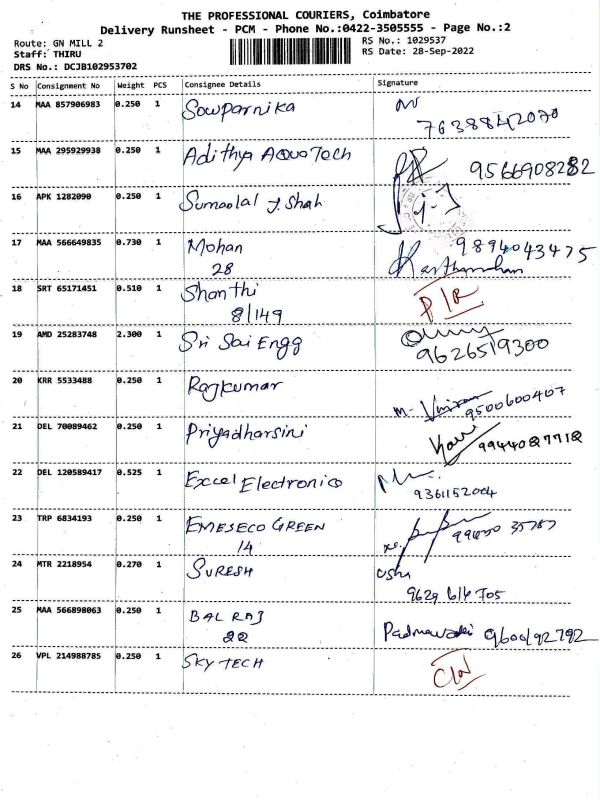 THE PROFESSIONAL COURIERS, Coimbatore
Delivery Runsheet - PCM - Phone No.:0422-3505555 - Page No.:2
Route: GN MILL 2
RS No.: 1029537
Staff: THIRU
RS Date: 28-Sep-2022
DRS No.: DCJB102953702
S No Consignment No Weight PCS Consignee Details Signature
14 MAA 857906983 0.250 1 Sowparnika
7638842070
15 MAA 295929938 0.250 1 Adithya Aqua Tech
9566908282
16 APK 1282090 0.250 1 J. Shah
17 MAA 566649835 0.730 1 Mohan 9894043475
28
18 SRT 65171451 0.510 1 Shanthi
8/149
19 AMD 25283748 2.300 1 Sri Sai Engg
9626519300
20 KRR 5533488 0.250 1 Rajkumar
9500600407
21 DEL 70089462 0.250 1 Priyadharsini
9944027712
22 DEL 120589417 0.525 1 Excel Electronics
9361152004
23 TRP 6834193 0.250 1 EMESECO GREEN
14
24 MTR 2218954 0.270 1 SURESH Usha
9629 614 705
25 MAA 566898063 0.250 1 BALRAJ
22 Padmavathi 9600192792
26 VPL 214988785 0.250 1 SKY TECH